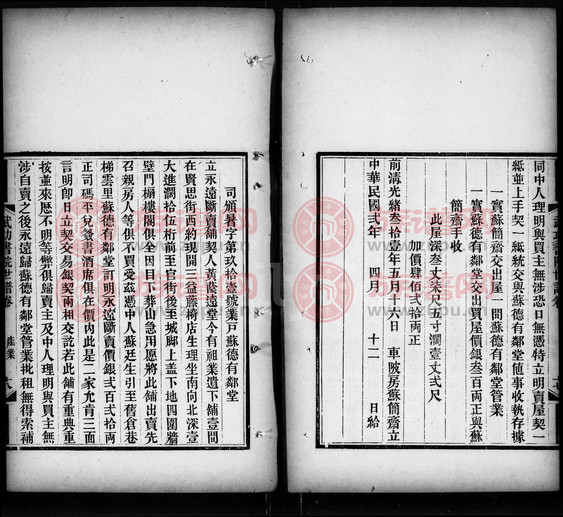 同中人理明與買主無涉恐口無憑特立明賣屋契一
紙並上手契一紙統交與蘇德有鄰堂隨事收執存據
一實蘇簡齋交出屋一間蘇德有鄰堂管業
一實蘇德有鄰堂交出買屋價銀叁百兩正與蘇
簡齋手收
此屋深叁丈柒尺五寸濶壹丈弍尺
加價肆佰弍拾兩正
前清光緒叁拾壹年五月十六日 車陂房蘇簡齋立
中華民國弍年 四月 十二 日給
司頒暑字第玖拾壹號業戶蘇德有鄰堂
立永遠斷賣舖契人黃蔭遠堂今有祖業遺下舖壹間
在賢思街西約現開三益藤椅店生理坐南向北深壹
大進濶拾伍桁前至官街後至城脚上蓋下地四圍牆
壁門扇樓閣俱全因目下葬山急用愿將此舖出賣先
召親房人等俱不買受茲憑中人蘇廷生引至舊倉巷
梯雲里蘇德有鄰堂訂明永遠斷賣價銀弍百弍拾兩
正司碼平兌簽書酒席俱在價內此是二家允肯三面
言明卽日立契交易銀契兩相交訖若此舖有重典重
按並來歴不明等弊俱歸賣主及中人理明與買主無
涉自賣之後永遠歸蘇德有鄰堂管業批租無得索補
武功書院世譜卷 產業 十八